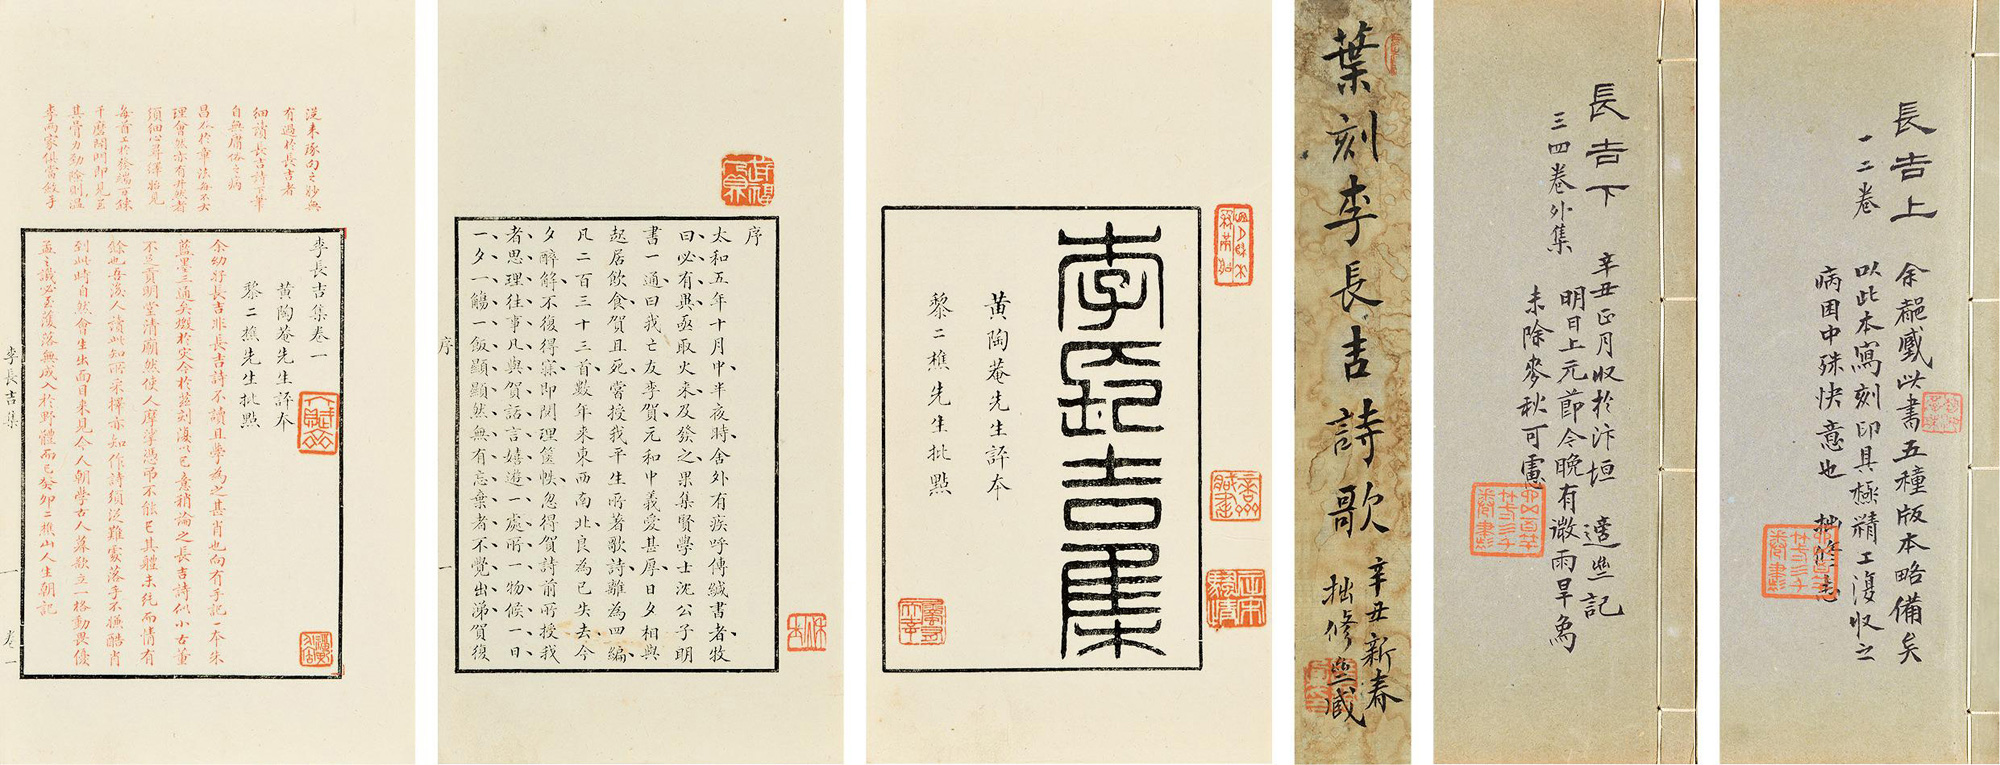 長吉上
一二卷
余藏此書五種版本略備矣
以此本寫刻印具極精工復收之
病困中殊快意也 拙修志
長吉下
三四卷外集
辛丑正月收於汴垣 適生記
明日上元節今晚有微雨旱象
未除麥秋可慮
葉刻李長吉詩歌
辛丑新春
拙修生藏
李長吉集
黃陶菴先生評本
黎二樵先生批點
序
太和五年十月中半夜時舍外有疾呼傳緘書者牧
曰必有異亟取火來及發之果集賢學士沈公子明
書一通曰我亡友李賀元和中義愛甚厚日夕相與
起居飲食賀且死嘗授我平生所著歌詩離為四編
凡二百三十三首數年來東西南北良為已失去今
夕醉解不復得寐即閱理篋帙忽得賀詩前所授我
者思理往事凡與賀話言嬉遊一處所一物候一日
一夕一觴一飯顯顯然無有忘棄者不覺出涕賀復
序
一
從來琢句之妙無
有過於長吉者
細讀長吉詩下筆
自無庸俗之病
昌谷於章法每不大
理會然亦有井然者
須細心尋繹始見
每首工於發端百鍊
千磨開門即見
其骨力勁險則溫
李兩家俱當斂手
李長吉集卷一
黃陶菴先生評本
黎二樵先生批點
余幼好長吉非長吉詩不讀且夢為之甚肖也向有手記一本朱
藍墨三過矣燬於火今於葉刻復以己意稍論之長吉詩似小古董
不足貢明堂清廟然使人摩挲憑弔不能已其體未純而情有
餘也吾後人讀此知所采擇亦知作詩須從難處落手不撫酷肖
到此時自然會生出面目來見今人朝學古人暮欲立一格動畏優
孟之譏必至濩落無成入於野體而已癸卯二樵山人生朝記
李長吉集
卷一
一